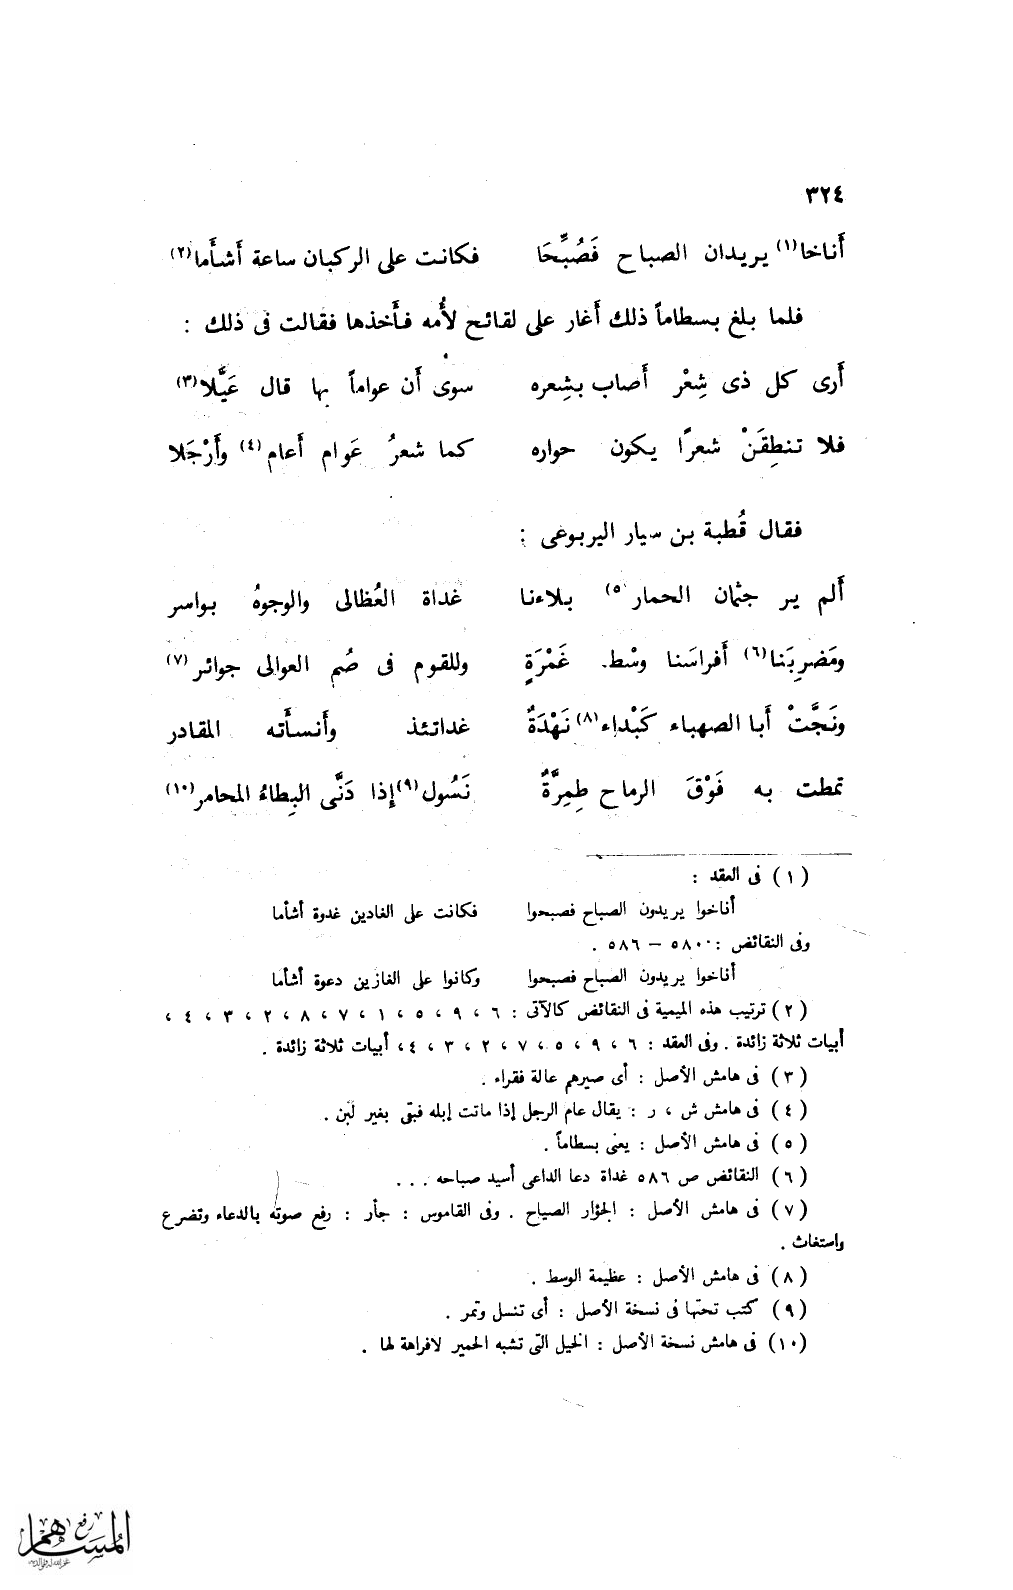 ٣٢٤
أَناخا(١) يريدان الصباح فَصُبِّحَا فكانت على الركبان ساعة أَشأَما(٢)
فلما بلغ بسطاماً ذلك أَغار على لقائح لأُمه فأَخذها فقالت فى ذلك :
أَرى كل ذى شِعْر أَصاب بشِعره سوى أَن عواماً بها قال عَيَّلا(٣)
فلا تنطِقَنْ شعرًا يكون حواره كما شعرُ عَوام أَعام(٤) وأَرْجَلا
فقال قُطبة بن سيار اليربوعى :
أَلم ير جثمان الحمار(٥) بلاءنا غداة العُظالى والوجوهُ بواسر
ومَضرِبَنا(٦) أَفراسَنا وسْط غَمْرَةٍ وللقوم فى صُم العوالى جوائر(٧)
ونَجَّتْ أَبا الصهباء كَبْداء(٨) نَهْدَةٌ غداتئذ وأَنسأَته المقادر
تمطت به فَوْقَ الرماح طِمِرَّةٌ نَسُول(٩) إِذا دَنَّى البِطاءُ المحامر(١٠)
(١) فى العقد :
أناخوا يريدون الصباح فصبحوا فكانت على الغادين غدوة أشأما
وفى النقائض : ٥٨٠ – ٥٨٦ .
أناخوا يريدون الصباح فصبحوا وكانوا على الغازين دعوة أشأما
(٢) ترتيب هذه الميمية فى النقائض كالآتى : ٦ ، ٩ ، ٥ ، ١ ، ٧ ، ٨ ، ٢ ، ٣ ، ٤ ،
أبيات ثلاثة زائدة . وفى العقد : ٦ ، ٩ ، ٥ ، ٧ ، ٢ ، ٣ ، ٤ ، أبيات ثلاثة زائدة .
(٣) فى هامش الأصل : أى صيرهم عالة فقراء .
(٤) فى هامش ش ، ر : يقال عام الرجل إذا ماتت إبله فبقى بغير لبن .
(٥) فى هامش الأصل : يعنى بسطاماً .
(٦) النقائض ص ٥٨٦ غداة دعا الداعى أسيد صباحه . . .
(٧) فى هامش الأصل : الجؤار الصياح . وفى القاموس : جأر : رفع صوته بالدعاء وتضرع
واستغاث .
(٨) فى هامش الأصل : عظيمة الوسط .
(٩) كتب تحتها فى نسخة الأصل : أى تنسل وتمر .
(١٠) فى هامش نسخة الأصل : الخيل التى تشبه الحمير لافراهة لها .
رفع
المساهم
غفر الله له ولوالديه